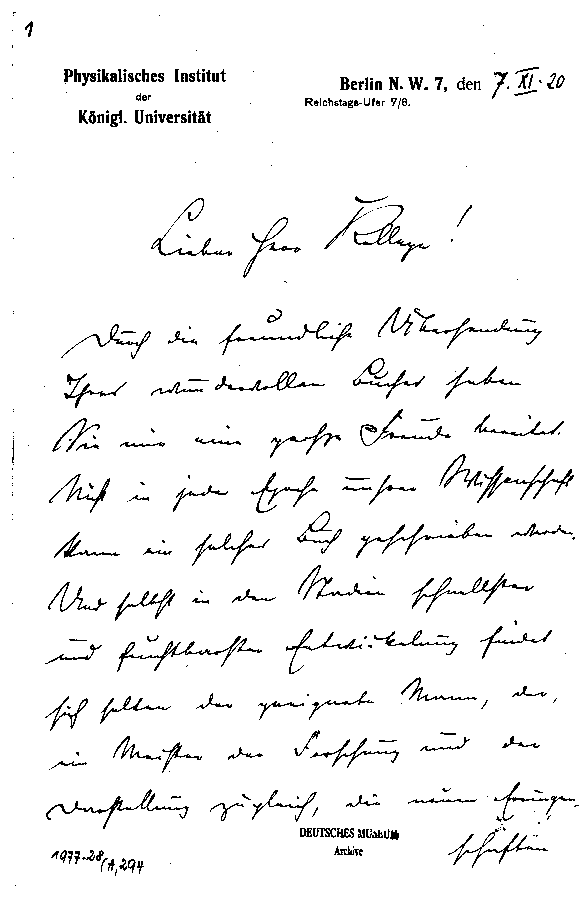 1
Physikalisches Institut
der
Königl. Universität
Berlin N. W. 7, den 7. XI. 20
Reichstags-Ufer 7/8.
Lieber Herr Kollege!
Durch die freundliche Übersendung
Ihres wundervollen Buches haben
Sie mir eine große Freude bereitet.
Nicht in jeder Epoche unsrer Wissenschaft
kann ein solches Buch geschrieben werden.
Und selbst in den Stadien schnellster
und fruchtbarster Entwickelung findet
sich selten der geeignete Mann, der,
ein Meister der Forschung und der
Darstellung zugleich, die neuen Errungen-
schaften
DEUTSCHES MUSEUM
Archive
1977-28/A,294